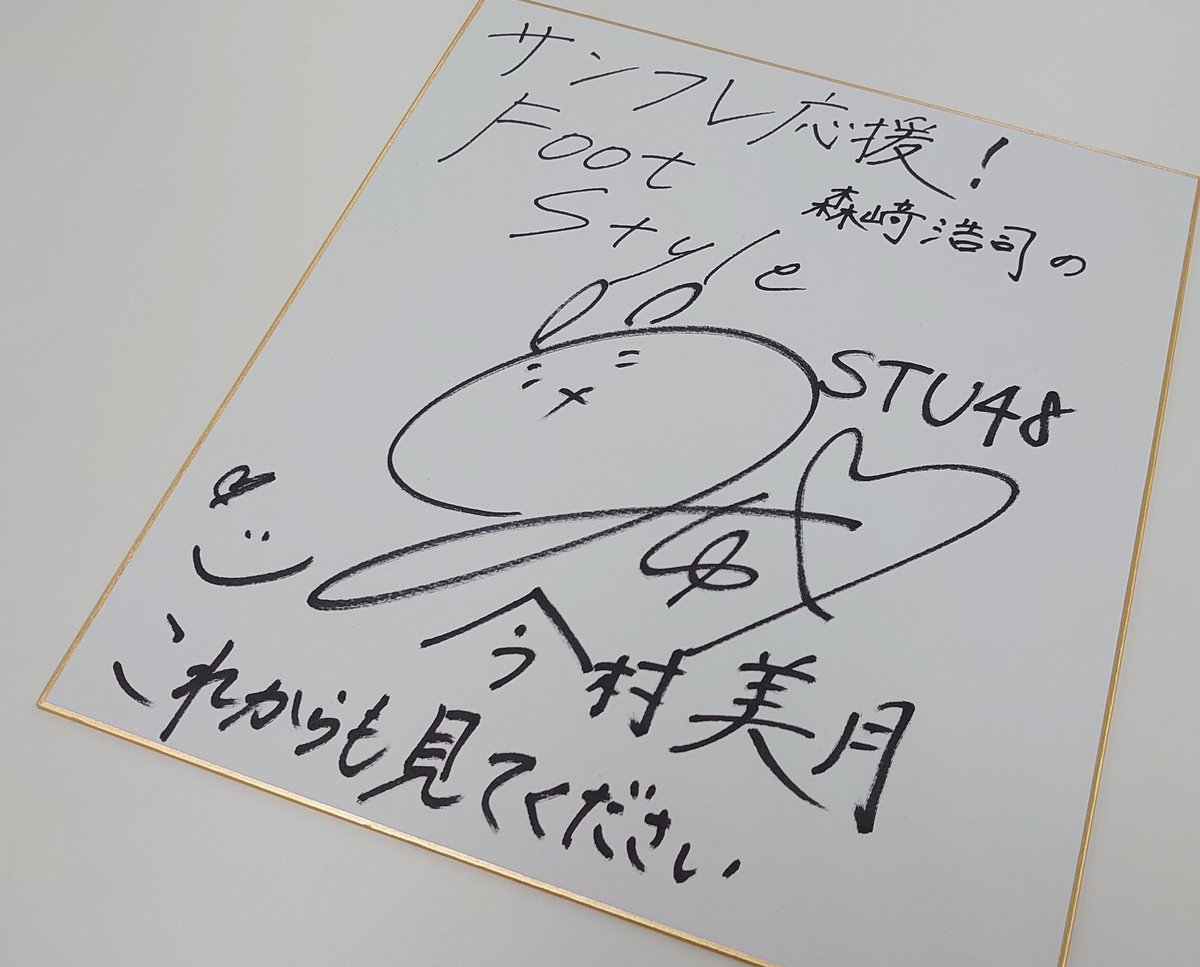 サンフレ応援！
森﨑浩司の
Foot
Style
STU48
今村美月
これからも見てください